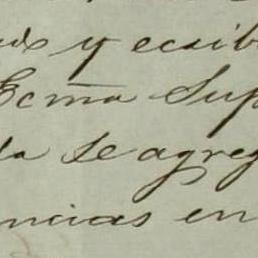 y ecsibi
Ecma Sup
da se agreg
ncias en